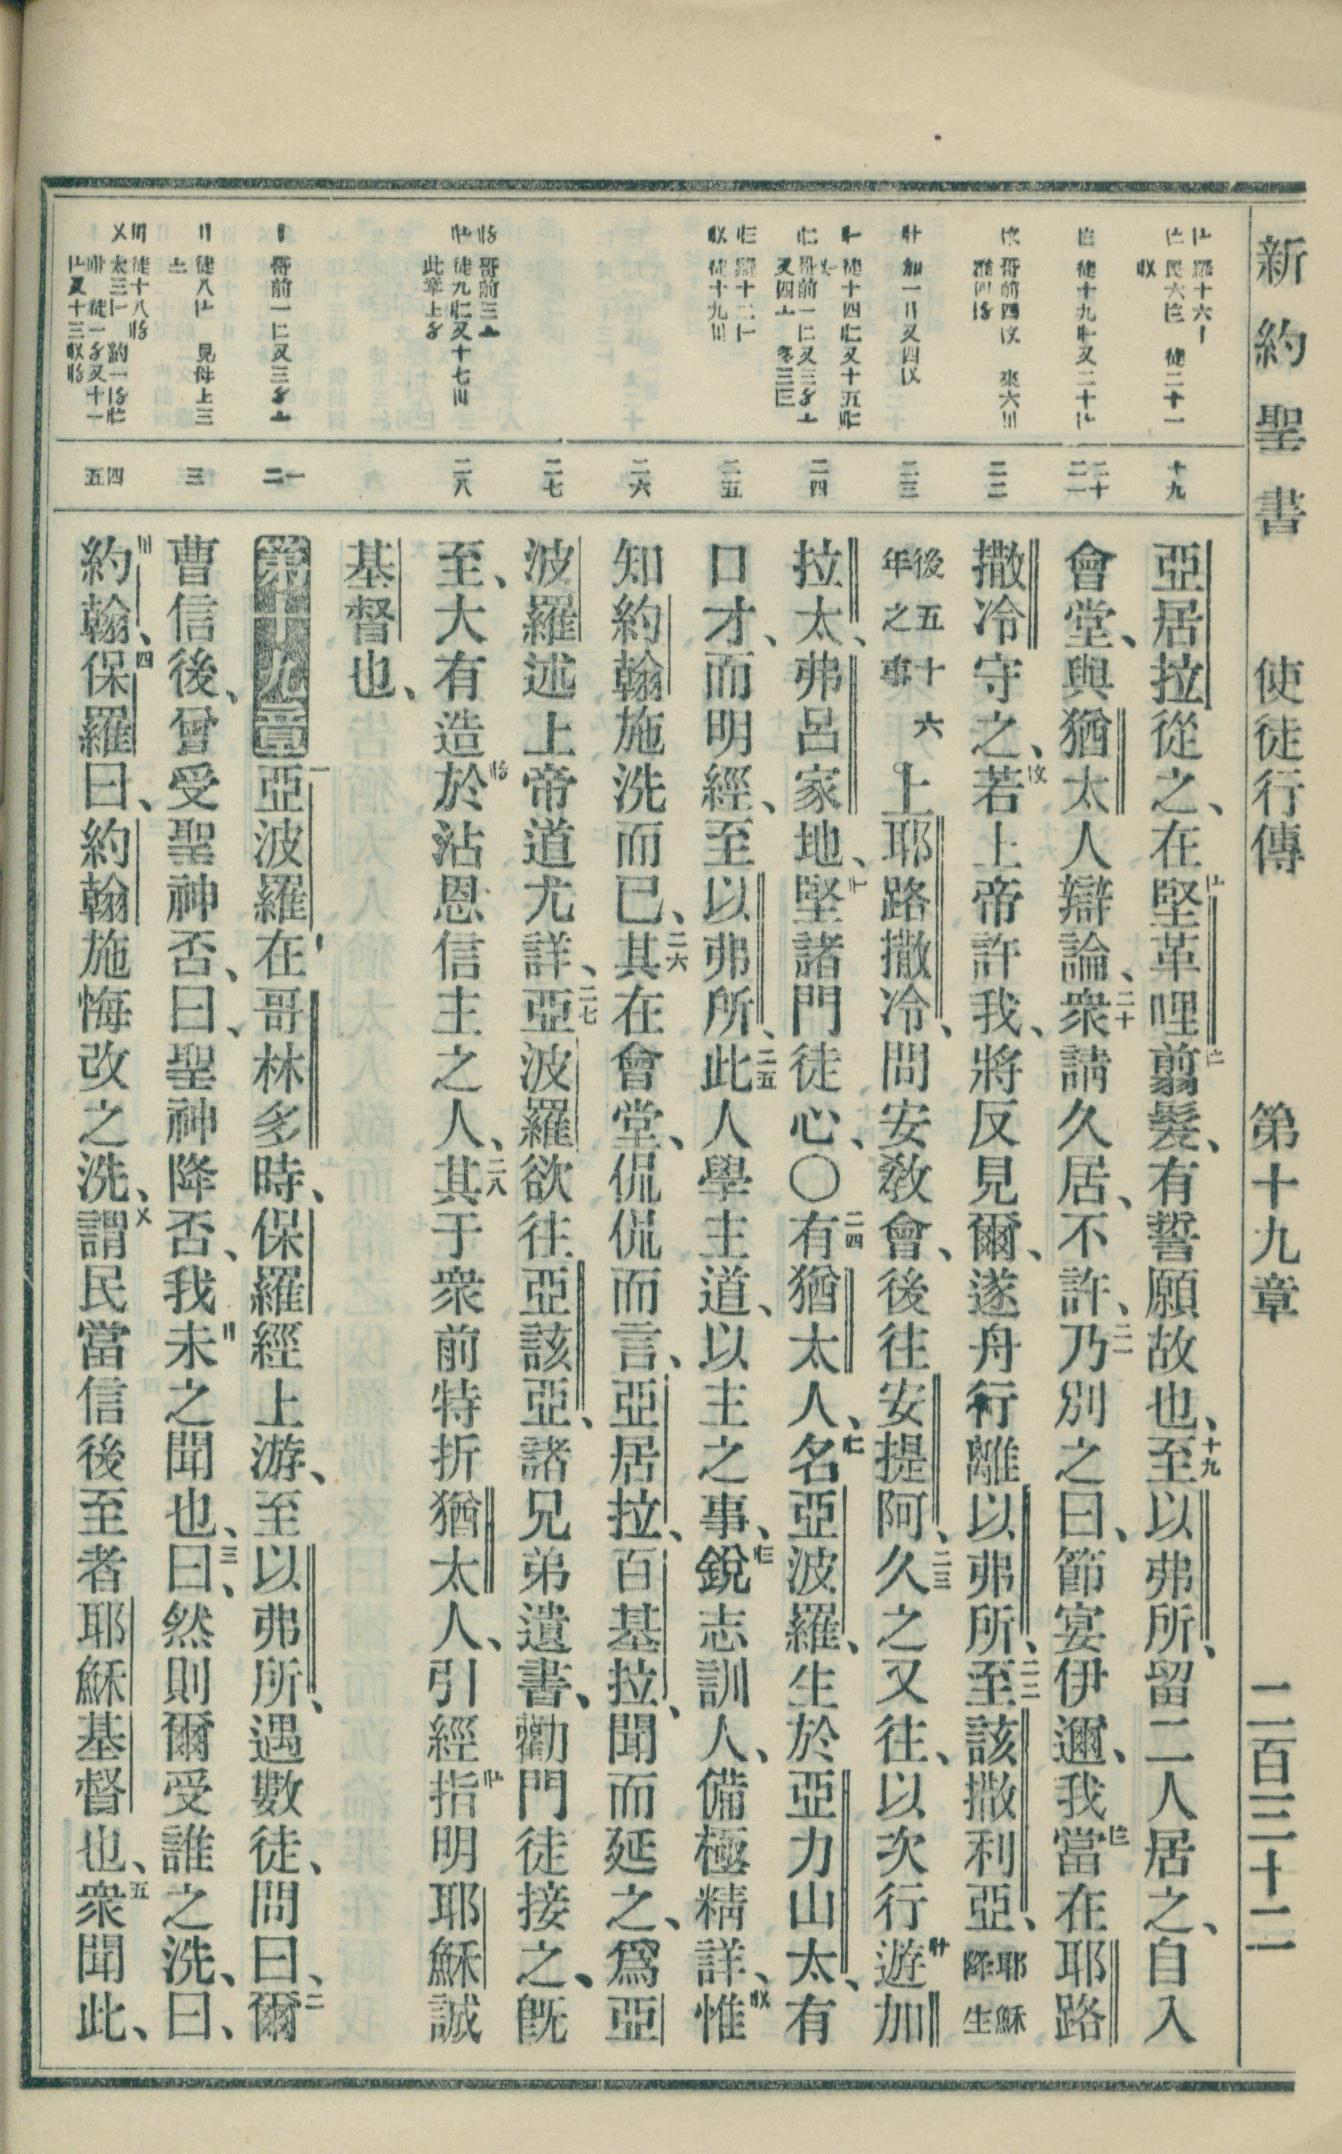 新約聖書 使徒行傳 第十九章 二百三十二
十九
二十 二一
二二
二三
二四
二五
二六
二七
二八
一 二
三
四 五
亞居拉從之、在堅革哩翦髮、有誓願故也、十九至以弗所、留二人居之、自入
會堂、與猶太人辯論、二十衆請久居、不許、二一乃別之曰、節宴伊邇、我當在耶路
撒冷守之、若上帝許我、將反見爾、遂舟行離以弗所、二二至該撒利亞、耶穌降生
後五十六年之事上耶路撒冷、問安敎會、後往安提阿、二三久之又往、以次行遊加
拉太、弗呂家地、堅諸門徒心、〇二四有猶太人、名亞波羅、生於亞力山太、有
口才、而明經、至以弗所、二五此人學主道、以主之事、銳志訓人、備極精詳、惟
知約翰施洗而已、二六其在會堂、侃侃而言、亞居拉、百基拉、聞而延之、爲亞
波羅述上帝道尤詳、二七亞波羅欲往亞該亞、諸兄弟遺書、勸門徒接之、旣
至、大有造於沾恩信主之人、二八其于衆前特折猶太人、引經指明耶穌誠
基督也、
第十九章 一亞波羅在哥林多時、保羅經上游、至以弗所、遇數徒、問曰、二爾
曹信後、曾受聖神否、曰、聖神降否、我未之聞也、三曰、然則爾受誰之洗、曰、
約翰、四保羅曰、約翰施悔改之洗、謂民當信後至者耶穌基督也、五衆聞此、